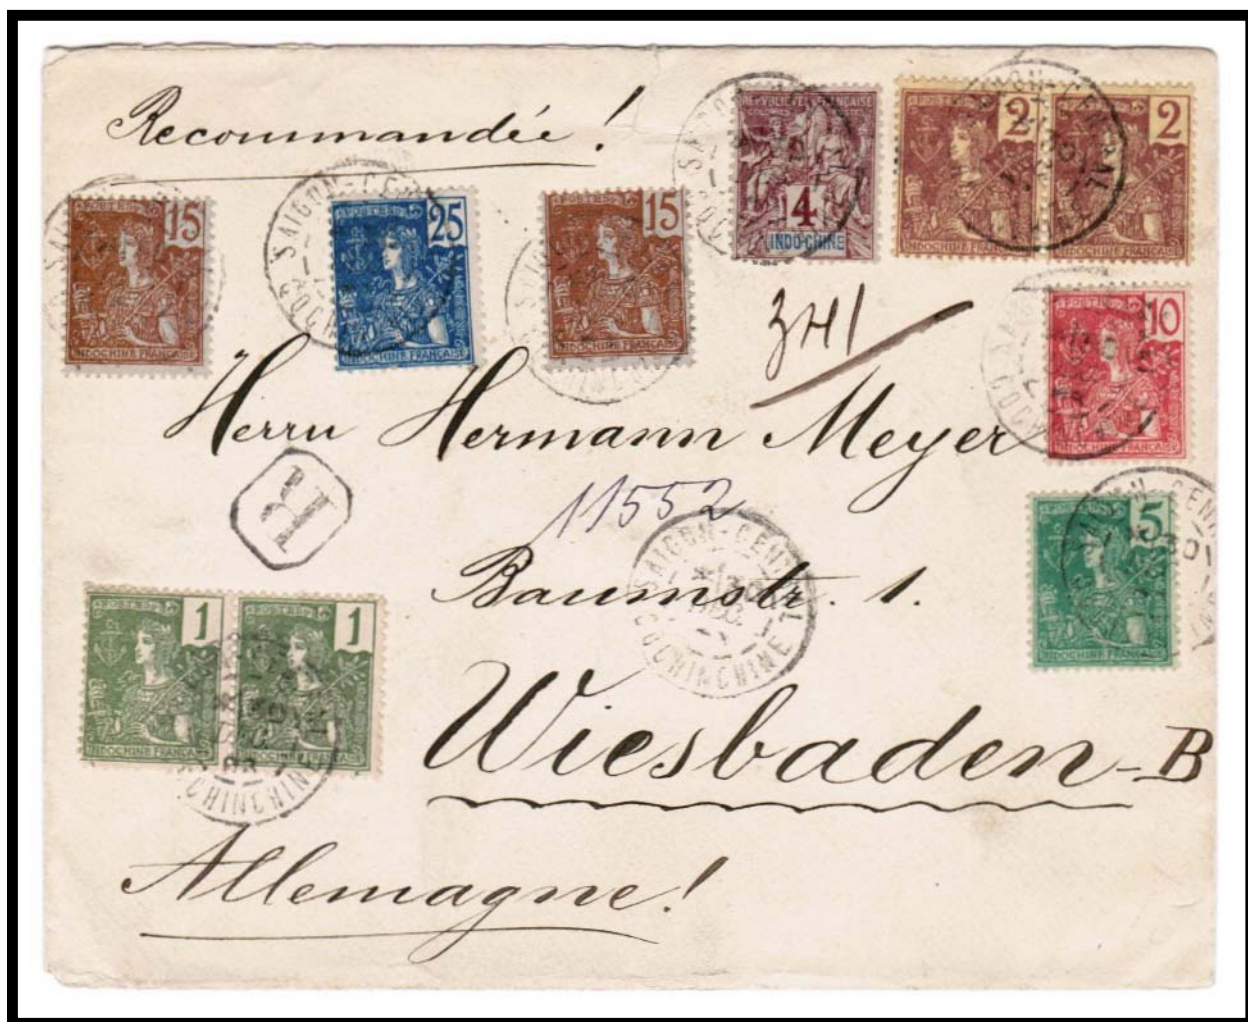 Recommandée !
RÉPUBLIQUE FRANÇAISE
4
INDO-CHINE
POSTES
2
INDOCHINE FRANÇAISE
POSTES
2
INDOCHINE FRANÇAISE
SAIGON-CENTRAL
POSTES
15
INDOCHINE FRANÇAISE
POSTES
25
INDOCHINE FRANÇAISE
POSTES
15
INDOCHINE FRANÇAISE
POSTES
10
INDOCHINE FRANÇAISE
Herrn Hermann Meyer
R
11552
POSTES
5
INDOCHINE FRANÇAISE
SAIGON-CENTRAL
COCHINCHINE
Baumstr. 1.
POSTES
1
INDOCHINE FRANÇAISE
POSTES
1
INDOCHINE FRANÇAISE
Wiesbaden-B
Allemagne!